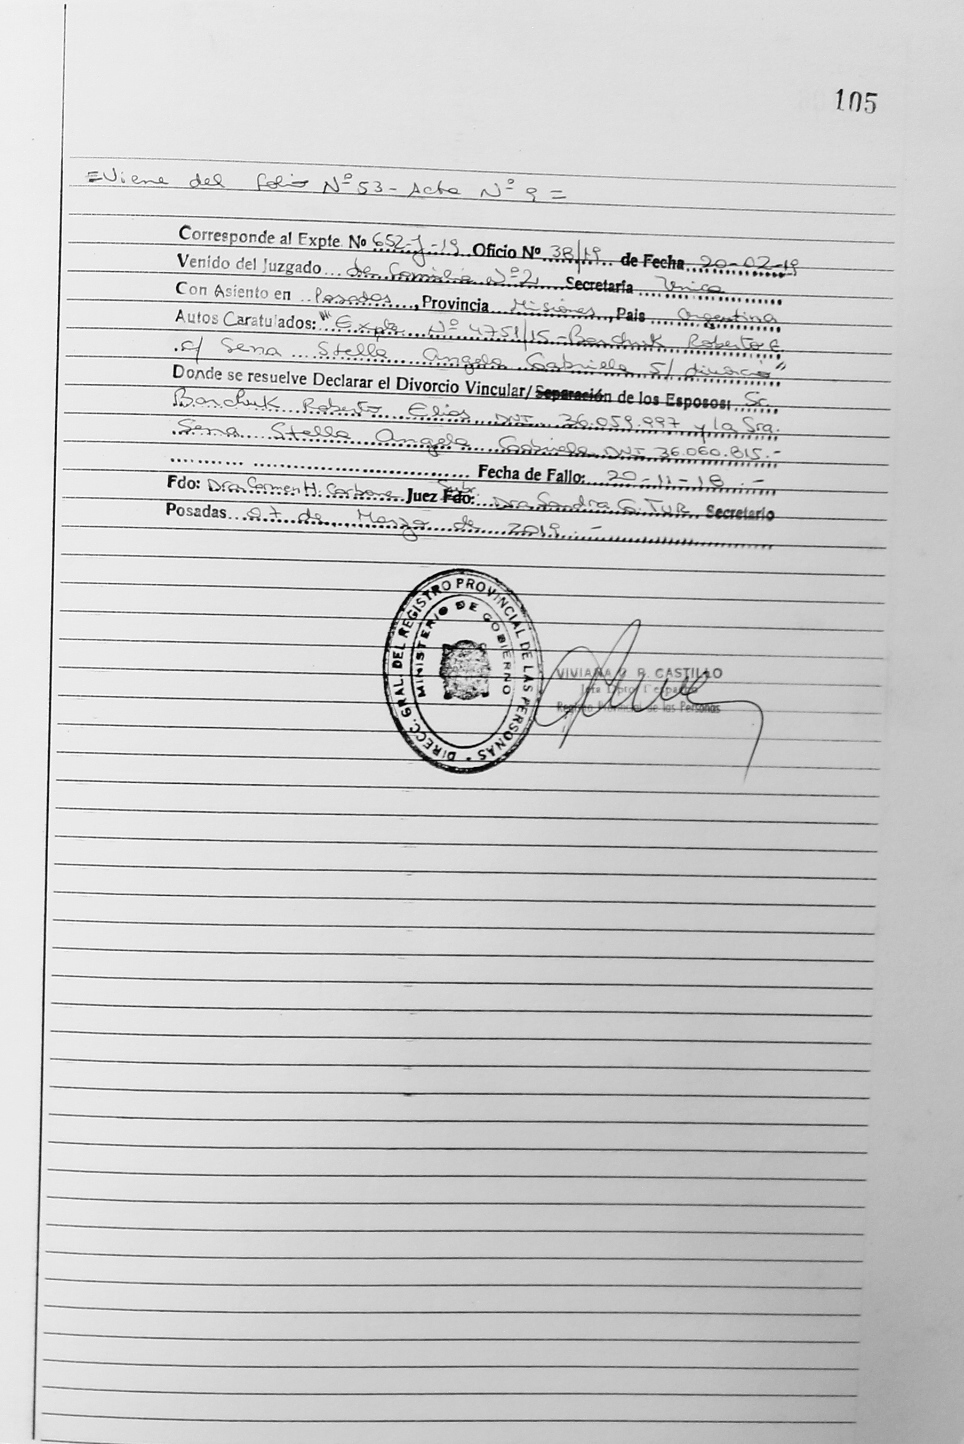 105
=Viene del folio Nº 53- Acta Nº 9=
Corresponde al Expte. Nº 652-J-19 Oficio Nº 38/19 de Fecha 20-02-19
Venido del Juzgado de Familia Nº 2 Secretaría Unica
Con Asiento en Posadas, Provincia Misiones, Pais Argentina
Autos Caratulados: "Expte. Nº 4751/15-Baschuk Roberto E
c/ Sena Stella Angela Gabriela S/ divorcio"
Donde se resuelve Declarar el Divorcio Vincular/Separación de los Esposos: Sr.
Baschuk Roberto Elias DNI. 36.059.997 y la Sra.
Sena Stella Angela Gabriela DNI 36.060.815.-
Fecha de Fallo: 20-11-18.-
Fdo: Dra. Carmen H. Carbone Juez Fdo: Dra. Sandra G. TUR Secretario
Posadas 07 de Marzo de 2019.-
DIRECC. GRAL. DEL REGISTRO PROVINCIAL DE LAS PERSONAS
MINISTERIO DE GOBIERNO
VIVIANA R. CASTILLO
Jefa Dpto.
Registro Provincial de las Personas